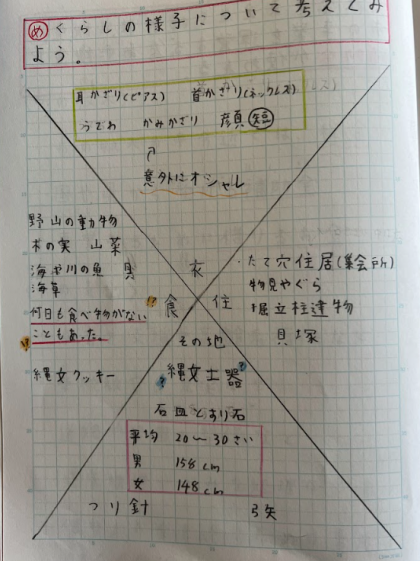 め くらしの様子について考えてみ
よう。
耳かざり(ピアス) 首かざり(ネックレス)
うでわ かみかざり
意外にオシャレ
野山の動物
木の実 山菜
海や川の魚 貝
海草
何日も食べ物がない
こともあった。
縄文クッキー
衣
食 住
その他
たて穴住居(集会所)
物見やぐら
掘立柱建物
貝塚
縄文土器
石皿とすり石
平均 20〜30さい
男 158cm
女 148cm
つり針 弓矢